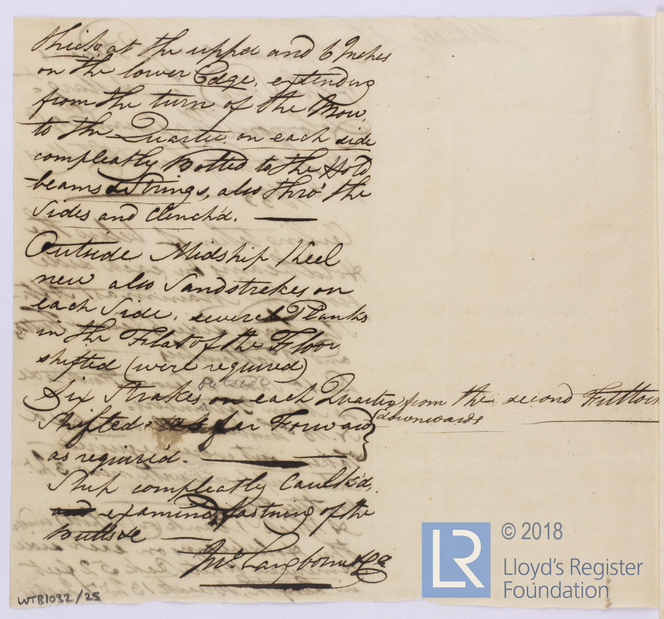 thick at the upper and 6 Inches
on the lower Edge, extending
from the turn of the Bow
to the Quarter on each side
compleatly Bolted to the Hold
beams & Strings, also thro' the
Sides and Clench'd.
Outside Midship Keel
new also Sandstrekes on
each Side, several Planks
in the Flat of the Floor
shifted (were required)
outside
Six Strakes on each Quarter from the second Futtock
downwards
Shifted as far Forward
as required.
Ship compleatly Caulk'd,
and examind fastning of the
Buttside
Jno. Langbourne
WTB1032/25
LR
© 2018
Lloyd's Register
Foundation